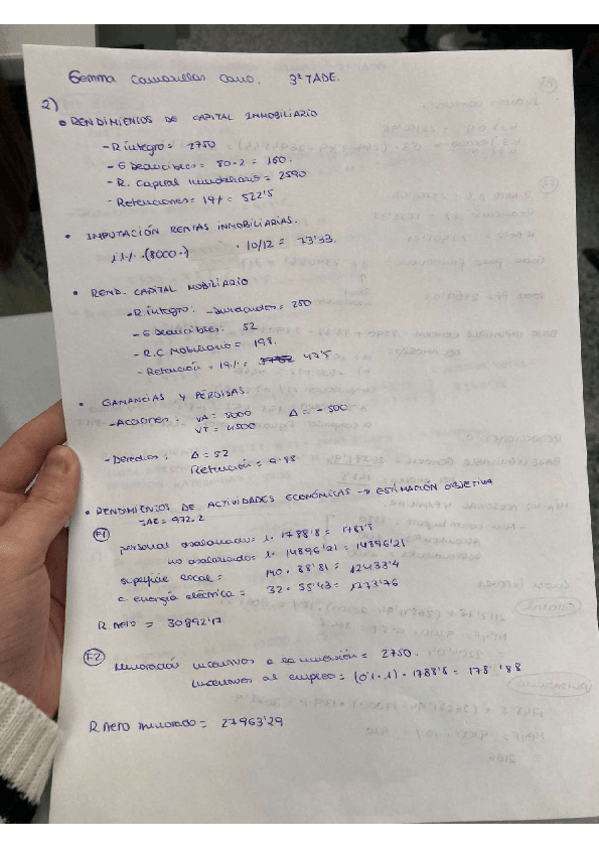 Gemma Camarillas Cano. 3º TADE.
2)
• RENDIMIENTOS DE CAPITAL INMOBILIARIO
- R íntegro = 2750
- G Deducibles = 80·2 = 160.
- R. Capital inmobiliario = 2590
- Retenciones = 19% = 522'5
• IMPUTACIÓN RENTAS INMOBILIARIAS.
1'1% · (8000 ·) · 10/12 = 73'33.
• REND. CAPITAL MOBILIARIO
- R. íntegro: - Dividendos = 250
- G Deducibles: 52
- R.C Mobiliario = 198.
- Retención = 19% = 47'5
• GANANCIAS Y PÉRDIDAS.
- Acciones: VA = 5000 Δ = - 500
VT = 4500
- Derechos: Δ = 52
Retención = 9'88
• RENDIMIENTOS DE ACTIVIDADES ECONÓMICAS → ESTIMACIÓN OBJETIVA
IAE = 972.2
F1
personal asalariado: 1· 1788'8 =
no asalariado: 1· 14896'21 = 14896'21
superficie local = 140 · 88'81 = 12433'4
c energía eléctrica = 32 · 55'43 = 1773'76
R. neto = 30892'17
F2
Minoración incentivos a la inversión = 2750.
incentivos al empleo = (0'1·1) · 1788'8 = 178'88
R neto minorado = 27963'29